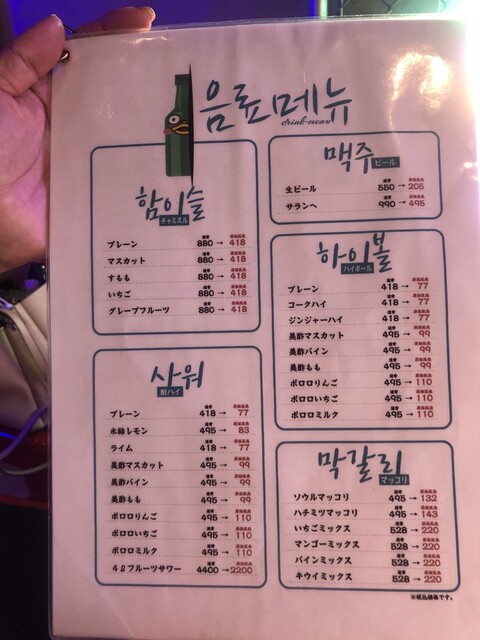 음료메뉴
drink-menu
참이슬
チャミスル
プレーン 880→418
マスカット 880→418
すもも 880→418
いちご 880→418
グレープフルーツ 880→418
사워
酎ハイ
プレーン 418→77
氷結レモン 495→83
ライム 418→77
美酢マスカット 495→99
美酢パイン 495→99
美酢もも 495→99
ポロロりんご 495→110
ポロロいちご 495→110
ポロロミルク 495→110
4ℓフルーツサワー 4400→2200
맥주
ビール
生ビール 550→205
サランへ 990→495
하이볼
ハイボール
プレーン 418→77
コークハイ 418→77
ジンジャーハイ 418→77
美酢マスカット 495→99
美酢パイン 495→99
美酢もも 495→99
ポロロりんご 495→110
ポロロいちご 495→110
ポロロミルク 495→110
막걸리
マッコリ
ソウルマッコリ 495→132
ハチミツマッコリ 495→143
いちごミックス 528→220
マンゴーミックス 528→220
パインミックス 528→220
キウイミックス 528→220
※税込価格です。